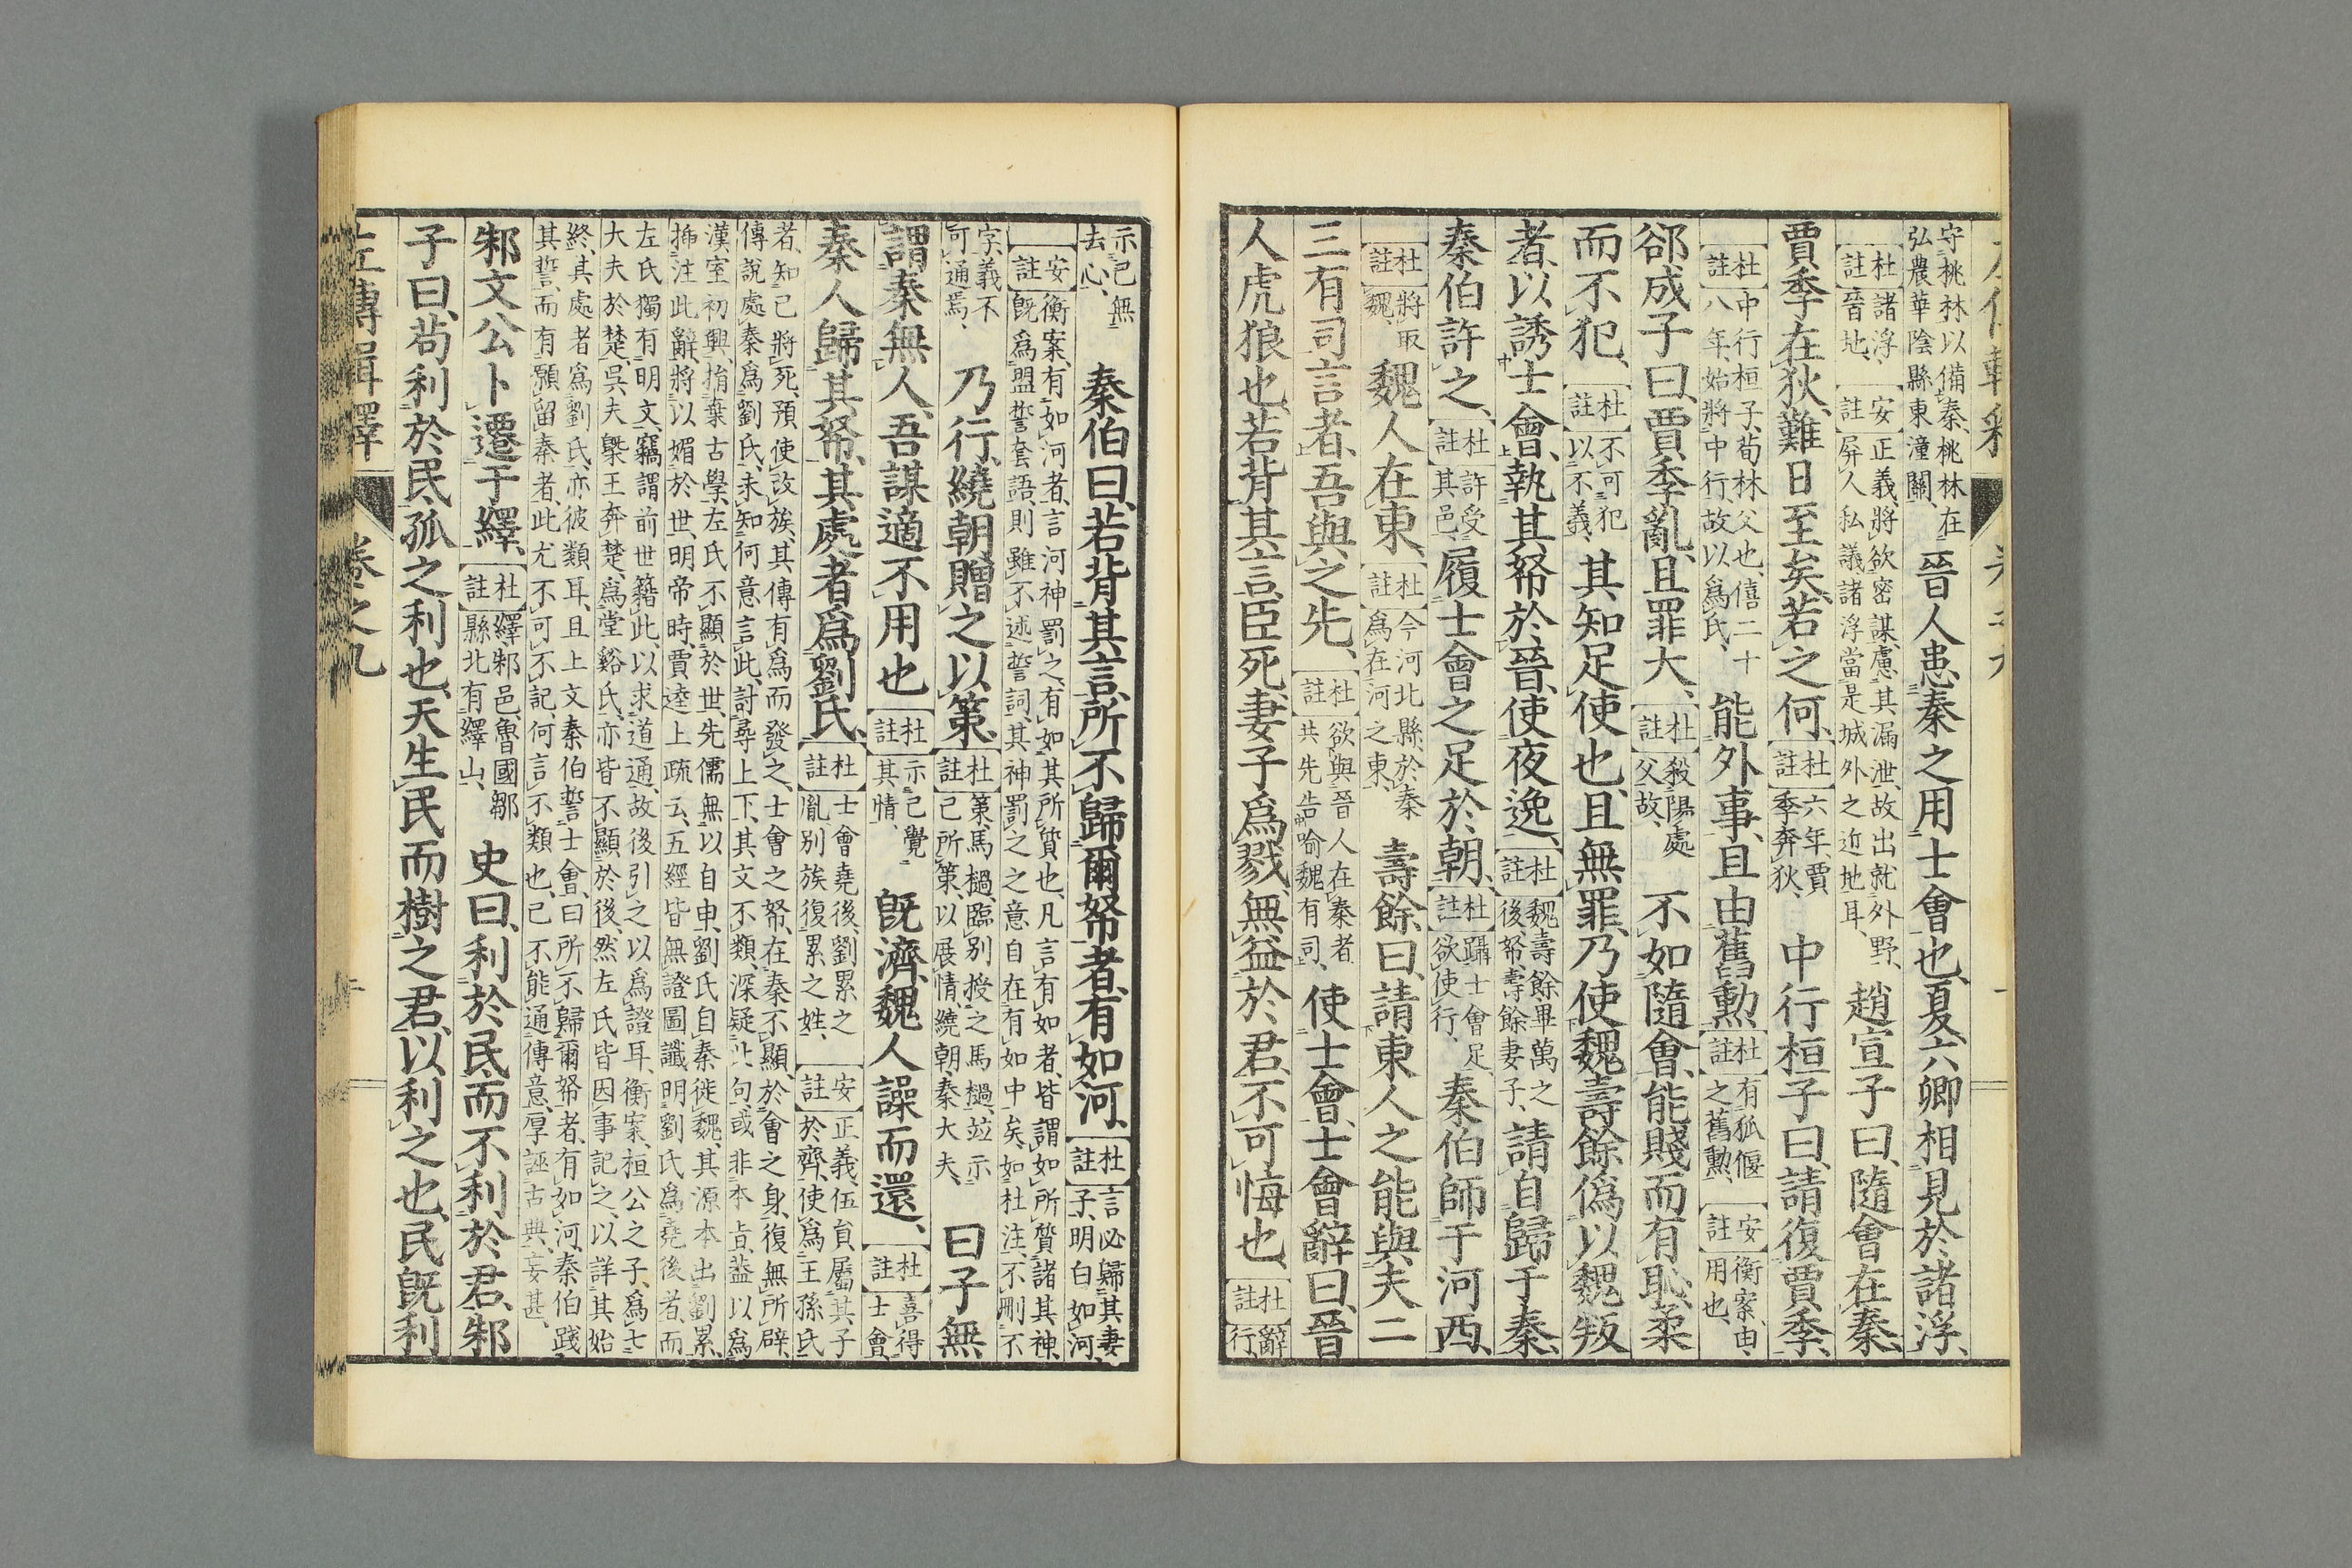 守桃林以備秦、桃林在
弘農華陰縣東潼關、
晉人患秦之用士會也、夏六卿相見於諸浮、
杜註 諸浮、晉地、
安註 正義、將欲密謀、慮其漏泄、故出就外野、屏人私議、諸浮當是城外之近地耳、
趙宣子曰、隨會在秦、
賈季在狄、難日至矣、若之何、
杜註 六年、賈季奔狄、
中行桓子曰、請復賈季、
杜註 中行桓子、荀林父也、僖二十八年、始將中行、故以爲氏、
能外事、且由舊勳、
杜註 有狐偃之舊勲、
安註 衡案、由、用也、
郤成子曰、賈季亂、且罪大、
杜註 殺陽處父故、
不如隨會、能賤而有恥、柔
而不犯、
杜註 不可犯以不義、
其知足使也、且無罪、乃使魏壽餘僞以魏叛
者、以誘士會、執其帑於晉、使夜逸、
杜註 魏壽餘、畢萬之後、帑、壽餘妻子、
請自歸于秦、
秦伯許之、
杜註 許受其邑、
履士會之足於朝、
杜註 躡士會足、欲使行、
秦伯師于河西、
杜註 將取魏、
魏人在東、
杜註 今河北縣、於秦爲在河之東、
壽餘曰、請東人之能與夫二
三有司言者、吾與之先、
杜註 欲與晉人在秦者共先告喻魏有司、
使士會、士會辭曰、晉
人虎狼也、若背其言、臣死、妻子爲戮、無益於君、不可悔也、
杜註 辭行、
示已無
去心、
秦伯曰、若背其言、所不歸爾帑者、有如河、
杜註 言必歸其妻子、明白如河、
安註 衡案、有如河者、言河神罰之、有如其所質也、凡言有如者、皆謂如所質諸其神、既爲盟誓套語、則雖不述誓詞、其神罰之之意、自在有如中矣、如杜注、不刪不
字、義不
可通焉、
乃行、繞朝贈之以策、
杜註 策、馬檛、臨別授之馬檛、竝示已所策、以展情、繞朝、秦大夫、
曰子無
謂秦無人、吾謀適不用也、
杜註 示已覺其情、
既濟、魏人譟而還、
杜註 喜得士會、
秦人歸其帑、其處者爲劉氏、
杜註 士會堯後、劉累之胤、別族復累之姓、
安註 正義、伍員屬其子於齊、使爲王孫氏
者、知已將死、預使改族、其傳有爲而發之、士會之帑、在秦不顯、於會之身、復無所辟、
傳說處秦爲劉氏、未知何意言此、討尋上下、其文不類、深疑此句或非本旨、蓋以爲
漢室初興、捐棄古學、左氏不顯於世、先儒無以自申、劉氏自秦徙魏、其源本出劉累、
插注此辭、將以媚於世、明帝時、賈逵上疏云、五經皆無證圖讖明劉氏爲堯後者、而
左氏獨有明文、竊謂前世籍此、以求道通、故後引之以爲證耳、衡案、桓公之子、爲七
大夫於楚、吳夫槩王奔楚、爲堂谿氏、亦皆不顯於後、然左氏皆因事記之、以詳其始
終、其處者爲劉氏、亦彼類耳、且上文秦伯誓士會、曰所不歸爾帑者、有如河、秦伯踐
其誓、而有願留秦者、此尤不可不記、何言不類也、已不能通傳意、厚誣古典、妄甚、
邾文公卜遷于繹、
杜註 繹、邾邑、魯國鄒縣北有繹山、
史曰、利於民、而不利於君、邾
子曰、苟利於民、孤之利也、天生民而樹之君、以利之也、民既利
左傳輯釋 卷之九